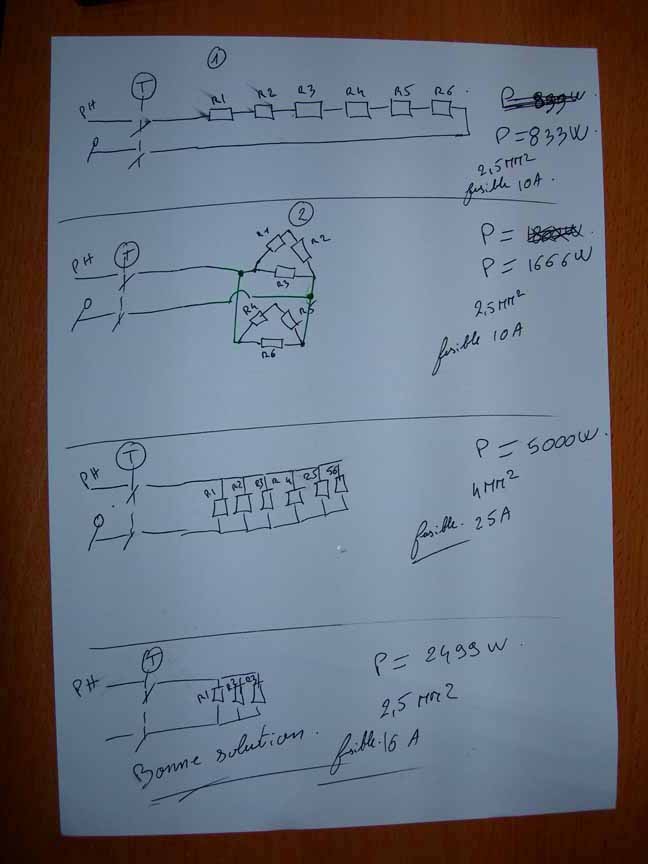 1
T
R1 R2 R3 R4 R5 R6
PH
P = 833W
P = 833W.
2,5MM²
fusible 10A.
2
T
R1 R2
PH
R3
R4 R5
R6
P =
P = 1666W
2,5MM²
fusible 10A
T
PH
R1 R2 R3 R4 R5
P = 5000W.
4MM²
fusible. 25A
T
PH
R1 R2 R3
P = 2499W.
2,5MM2
fusible. 16 A
Bonne solution.